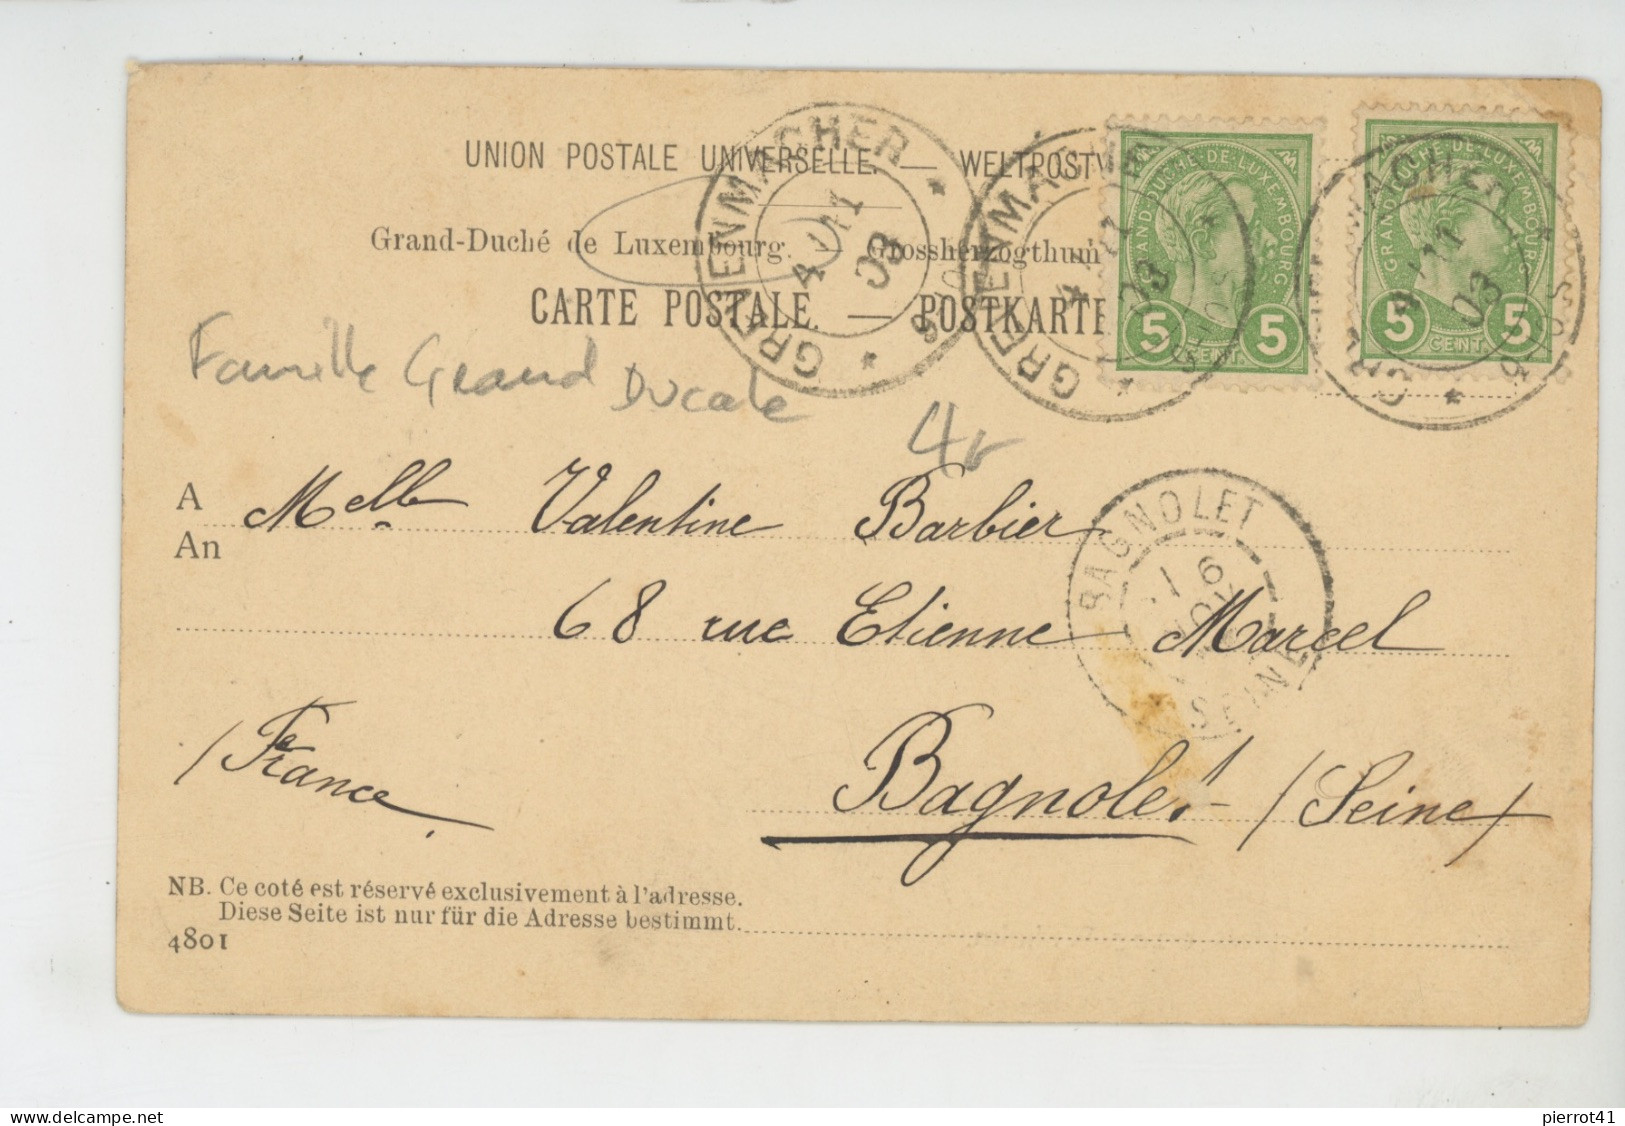 UNION POSTALE UNIVERSELLE. — WELTPOSTV
Grand-Duché de Luxembourg. Grossherzogthum
CARTE POSTALE. — POSTKARTE
GREVENMACHER
03
GREVENMA
03
ACHER
03
GRAND DUCHÉ-DE-LUXEMBOURG
5 CENT. 5
GRAND DUCHÉ-DE-LUXEMBOURG
5 CENT. 5
Famille Grand Ducale
A Melle Valentine Barbier
An
BAGNOLET
SEINE
68 rue Etienne Marcel
/France
Bagnolet (Seine)
NB. Ce coté est réservé exclusivement à l'adresse.
Diese Seite ist nur für die Adresse bestimmt.
4801
www.delcampe.net
pierrot41